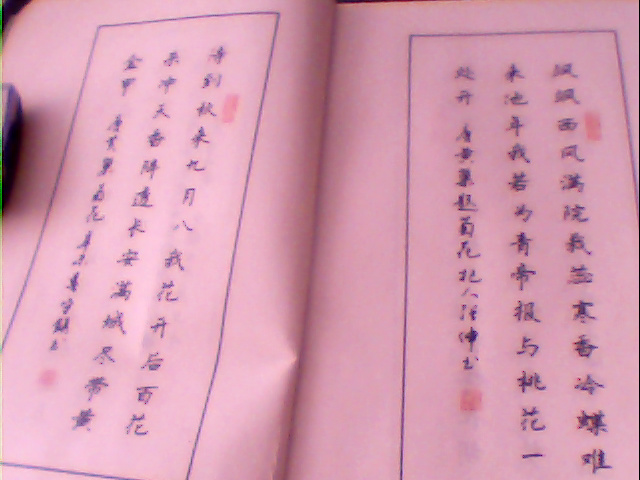 飒飒西风满院栽蕊寒香冷蝶难
来他年我若为青帝报与桃花一
处开 唐黄巢题菊花 书
待到秋来九月八我花开后百花
杀冲天香阵透长安满城尽带黄
金甲 唐黄巢菊花 书